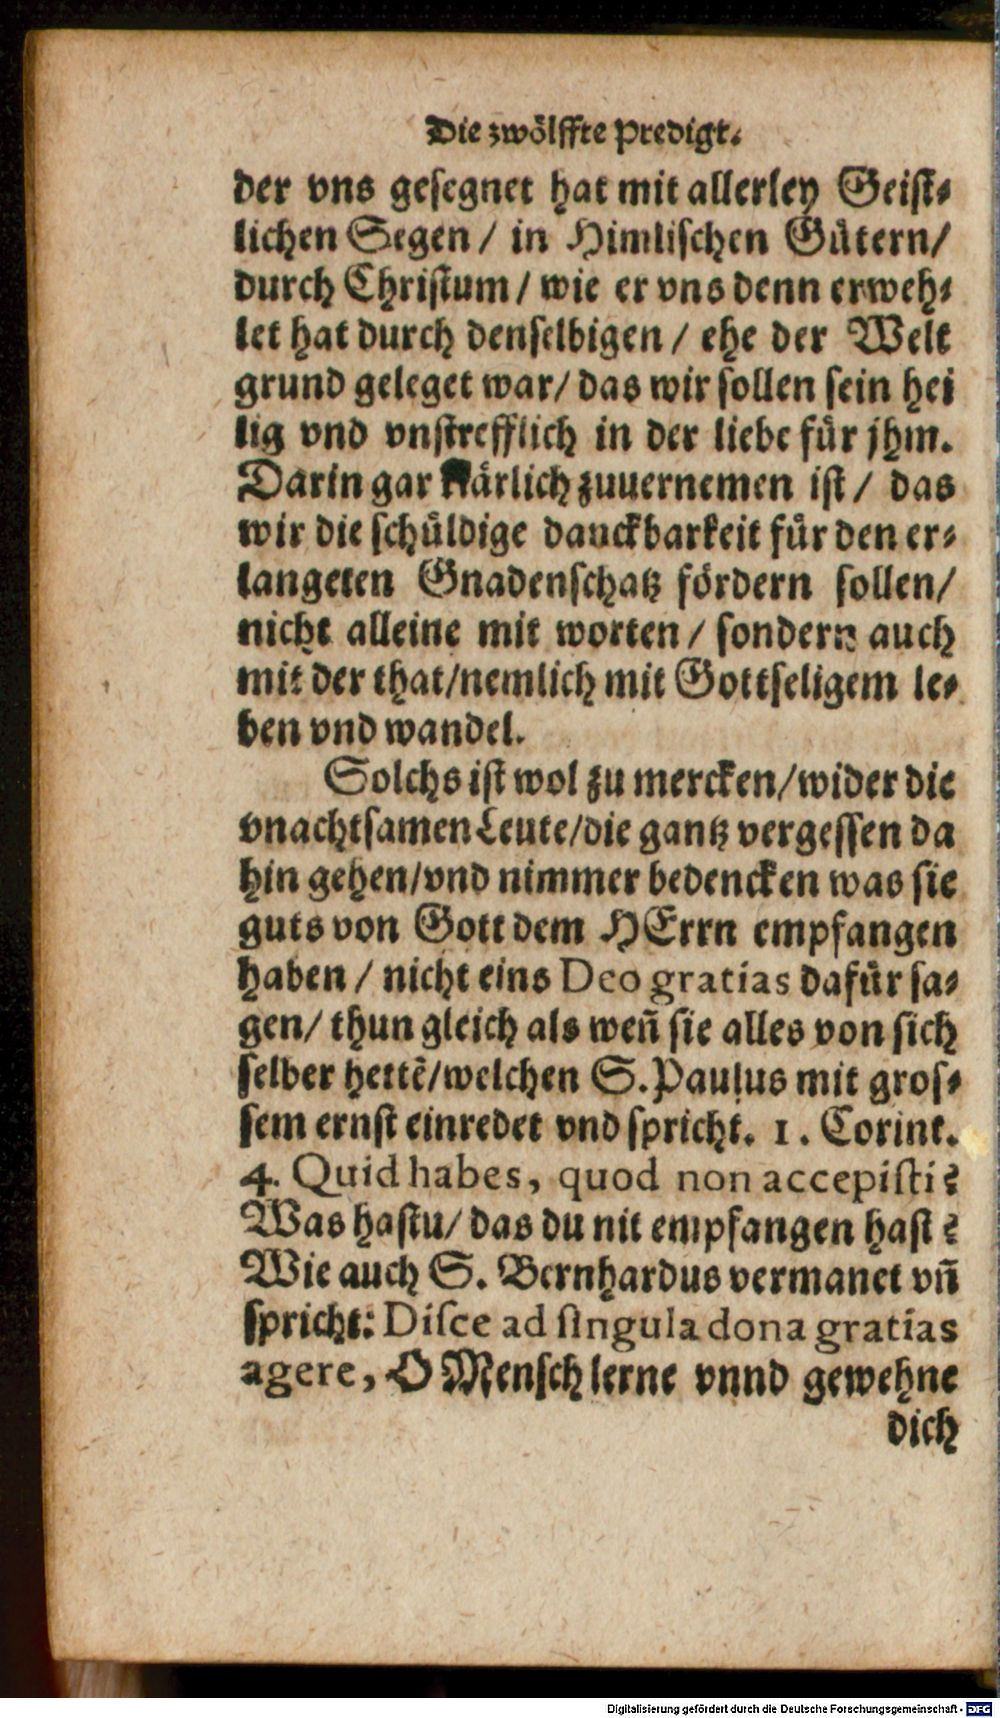 Die zwölffte Predigt.
der vns gesegnet hat mit allerley Geist⸗
lichen Segen / in Himlischen Gütern/
durch Christum / wie er vns denn erweh⸗
let hat durch denselbigen / ehe der Welt
grund geleget war/ das wir sollen sein hei
lig vnd vnstrefflich in der liebe für jhm.
Darin gar klärlich zuuernemen ist / das
wir die schüldige danckbarkeit für den er⸗
langeten Gnadenschatz fördern sollen/
nicht alleine mit worten / sondern auch
mit der that/nemlich mit Gottseligem le⸗
ben vnd wandel.
Solchs ist wol zu mercken/wider die
vnachtsamen Leute/die gantz vergessen da
hin gehen/vnd nimmer bedencken was sie
guts von Gott dem HErrn empfangen
haben / nicht eins Deo gratias dafür sa⸗
gen/ thun gleich als weñ sie alles von sich
selber hettẽ/welchen S. Paulus mit gros⸗
sem ernst einredet vnd spricht. 1. Corint.
4. Quid habes, quod non accepisti?
Was hastu/ das du nit empfangen hast?
Wie auch S. Bernhardus vermanet vñ
spricht: Disce ad singula dona gratias
agere, O Mensch lerne vnnd gewehne
dich
Digitalisierung gefördert durch die Deutsche Forschungsgemeinschaft - DFG